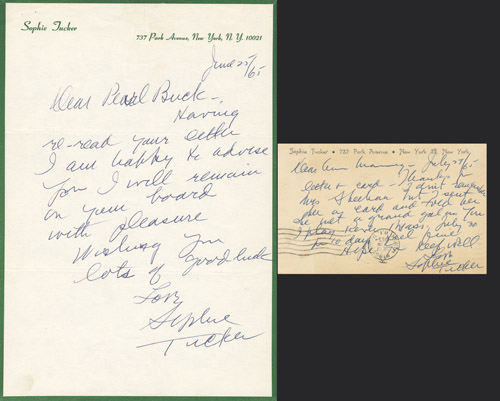 Sophie Tucker
737 Park Avenue, New York, N. Y. 10021
June 25/65
Dear Pearl Buck –
Having
re-read your letter
I am happy to advise
you I will remain
on your board
with pleasure
Wishing you
lots of good luck
Love
Sophie
Tucker
Sophie Tucker • 737 Park Avenue • New York 21, New York
Dear Ann July 27/65
letter & card – Thanks for
Mrs Sheehan but I sent
her a card and told her
she met a grand gal in you
I play
Hope
Keep well
Love
Sophie
Tucker